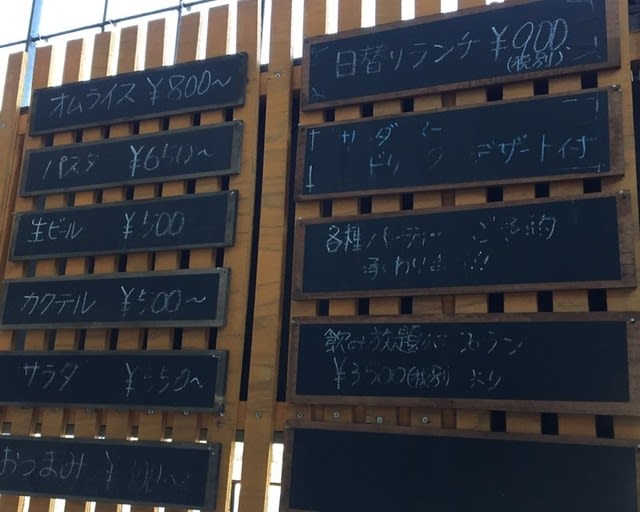 オムライス ¥800～
パスタ ¥650～
生ビール ¥500
カクテル ¥500～
サラダ ¥550～
おつまみ ¥
日替りランチ ¥900
(税別)
サラダ
ドリンク デザート付
各種パーティー ご予約
承ります!!
飲み放題 プラン
¥3500(税別)より